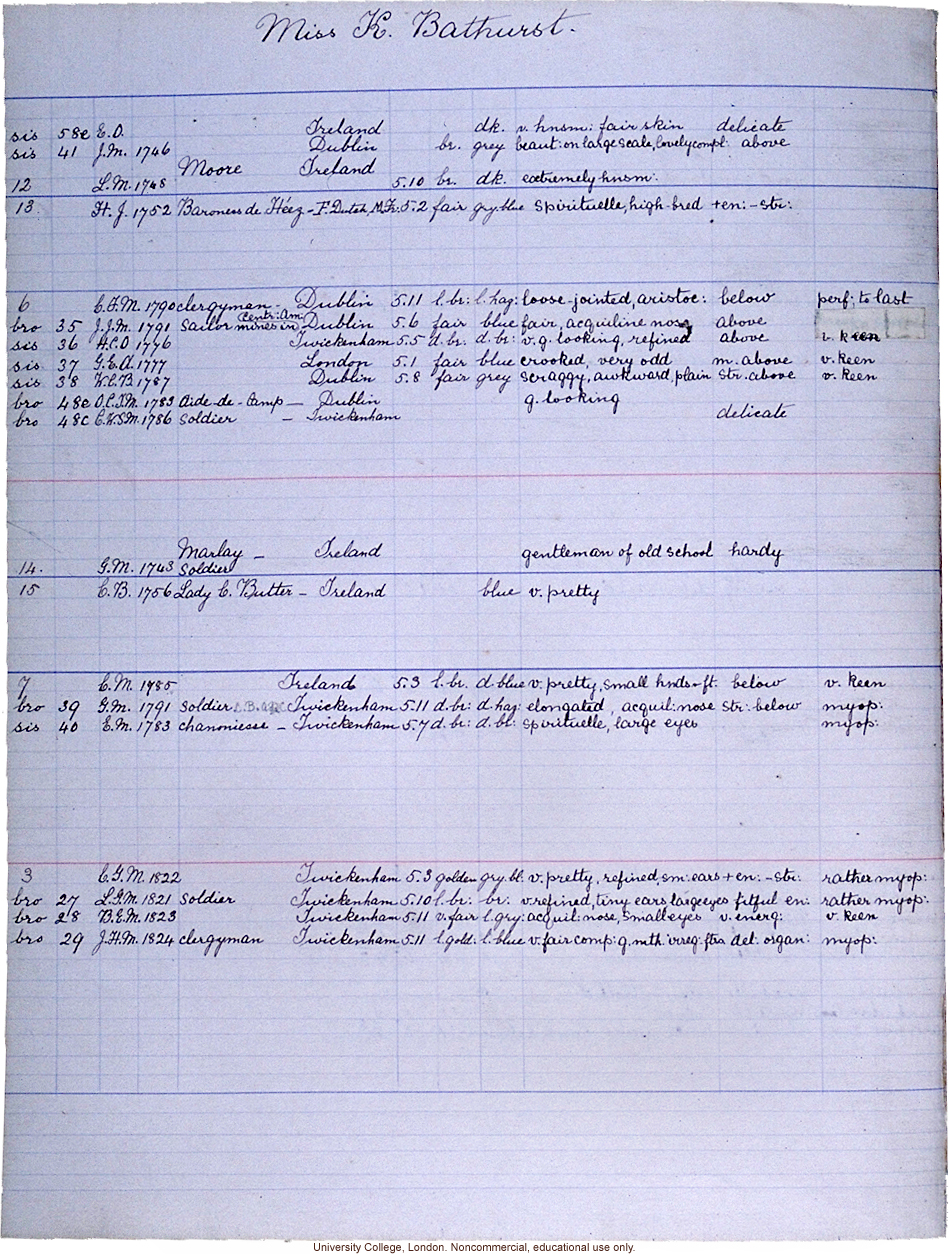 Miss K. Bathurst.
sis 58e E.O. Ireland dk. v. hnsm: fair skin delicate
sis 41 J.M. 1746 Dublin br. grey beaut: on large scale, lovely compl: above
Moore Ireland
12 L.M. 1748 5.10 br. dk. extremely hnsm:
13. H.J. 1752 Baroness de Héez - F. Dutch, M. Fr: 5.2 fair gry: blue spirituelle, high-bred +en: -str:
6 C.F.M. 1790 clergyman - Dublin 5.11 l. br: l. haz: loose-jointed, aristoc: below perf: to last
Centr: Am:
bro 35 J.J.M. 1791 Sailor mines in Dublin 5.6 fair blue fair, acquiline nose above
sis 36 H.C.O 1776 Twickenham 5.5 d. br: d. br: v. g. looking, refined above v. keen
sis 37 G.E.A. 1777 London 5.1 fair blue crooked, very odd m. above v. keen
sis 38 1787 Dublin 5.8 fair grey scraggy, awkward, plain str: above v. keen
bro 48e 1783 Aide-de-Camp - Dublin g. looking
bro 48c 1786 soldier - Twickenham delicate
Marlay - Ireland gentleman of old school hardy
14. G.M. 1743 Soldier
15 C.B. 1756 Lady C. Butler - Ireland blue v. pretty
7 C.M. 1785 Ireland 5.3 l. br. d. blue v. pretty, small hnds + ft. below v. keen
bro 39 G.M. 1791 soldier Twickenham 5.11 d. br: d. haz: elongated, acquil: nose str: below myop:
sis 40 E.M. 1783 chanoinesse - Twickenham 5.7 d. br: d. bl: spirituelle, large eyes myop:
3 C.G.M. 1822 Twickenham 5.3 golden gry. bl: v. pretty, refined, sm: ears +en: -str: rather myop:
bro 27 L.G.M. 1821 soldier Twickenham 5.10 l. br: br: v. refined, tiny ears, large eyes fitful en: rather myop:
bro 28 B.E.M. 1823 Twickenham 5.11 v. fair l. gry: acquil: nose, small eyes v. energ: v. keen
bro 29 J.H.M. 1824 clergyman Twickenham 5.11 l. gold: l. blue v. fair comp: g. mth: irreg: ftrs del: organ: myop:
University College, London. Noncommercial, educational use only.